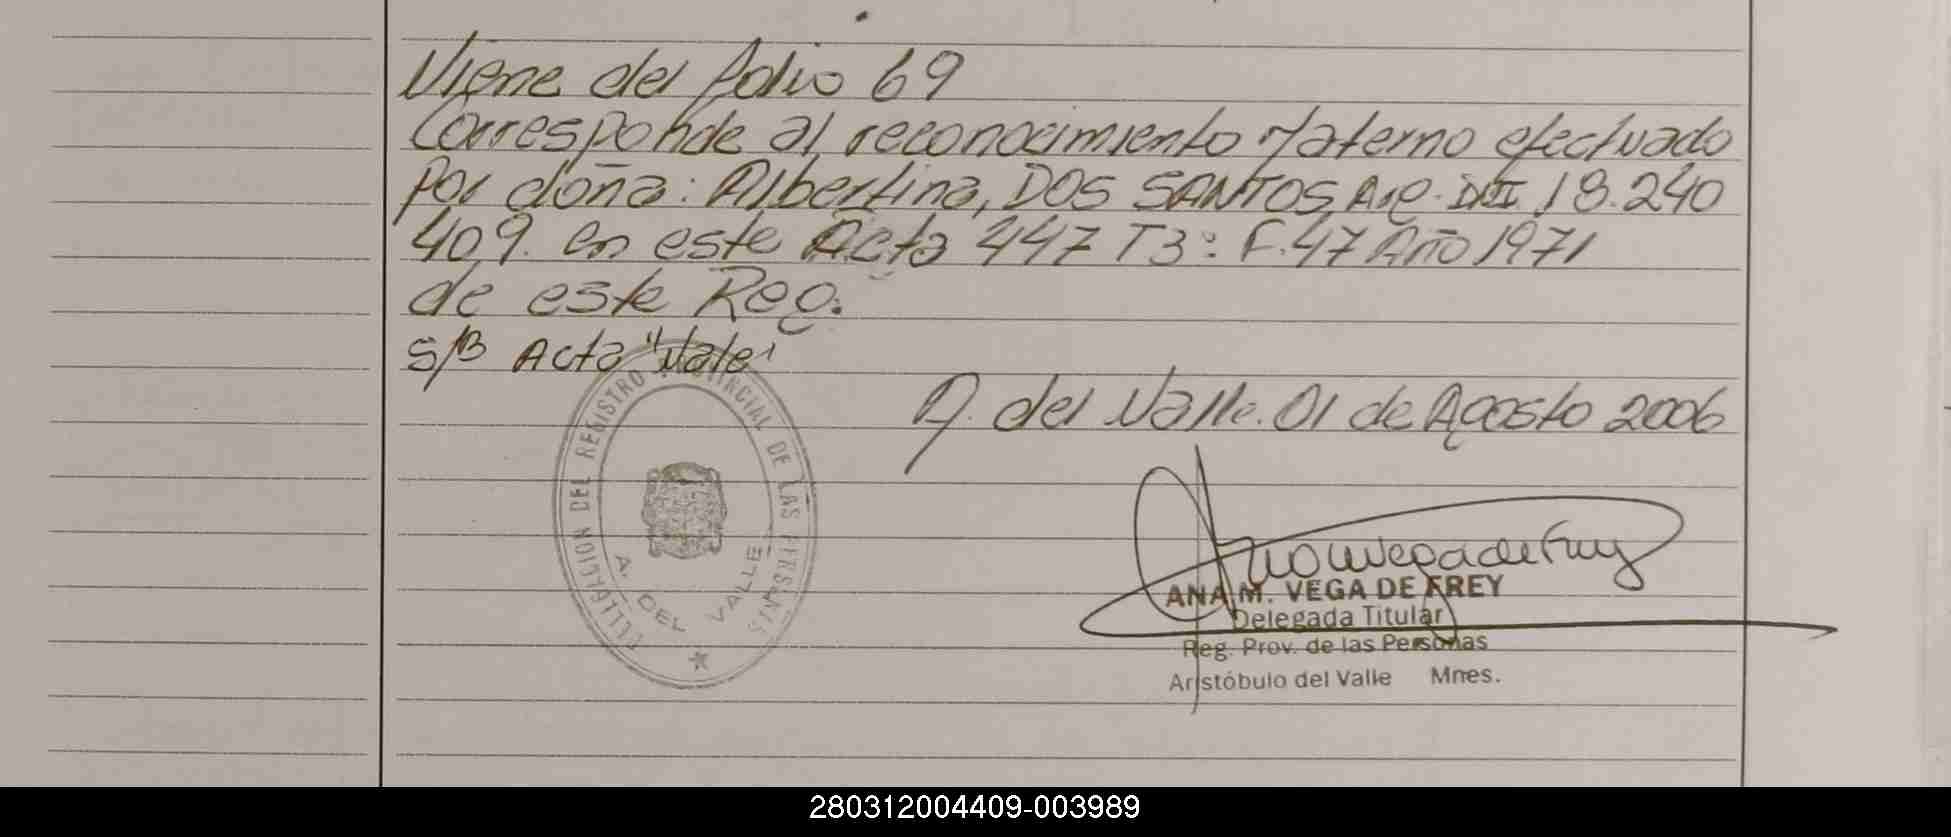 Viene del folio 69
Corresponde al reconocimiento Materno efectuado
Por doña: Albertina, DOS SANTOS Arg. DNI 18.240
409. en este Acta 447 T3º F.47 Año 1971
de este Reg.
S/B Acta "Vale"
A. del Valle. 01 de Agosto 2006
DELEGACION DEL REGISTRO PROVINCIAL DE LAS PERSONAS
A. DEL VALLE
Ana M Vega de Frey
ANA M. VEGA DE FREY
Delegada Titular
Reg. Prov. de las Personas
Aristóbulo del Valle Mnes.
280312004409-003989